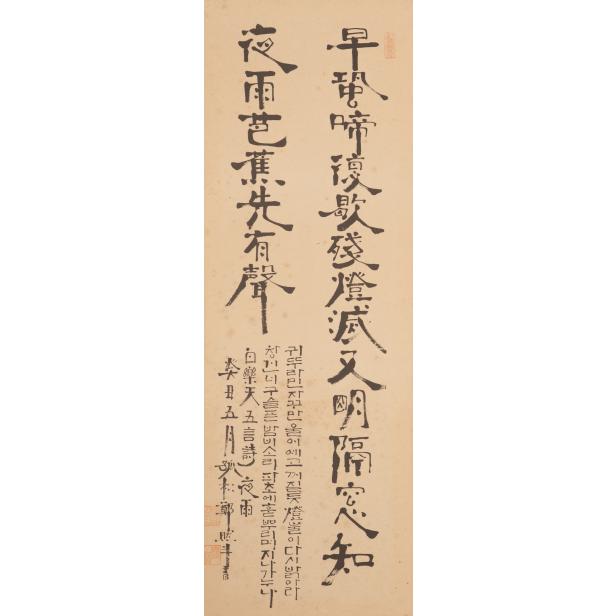 早蛩啼復歇殘燈滅又明隔窓知
夜雨芭蕉先有聲
귀뚜라민자꾸만울어예고꺼질듯燈불이다시밝아라
창건너구슬픈밤비소리파초에흩뿌리며지나가누나
白樂天五言詩夜雨
癸丑五月 鄭 書